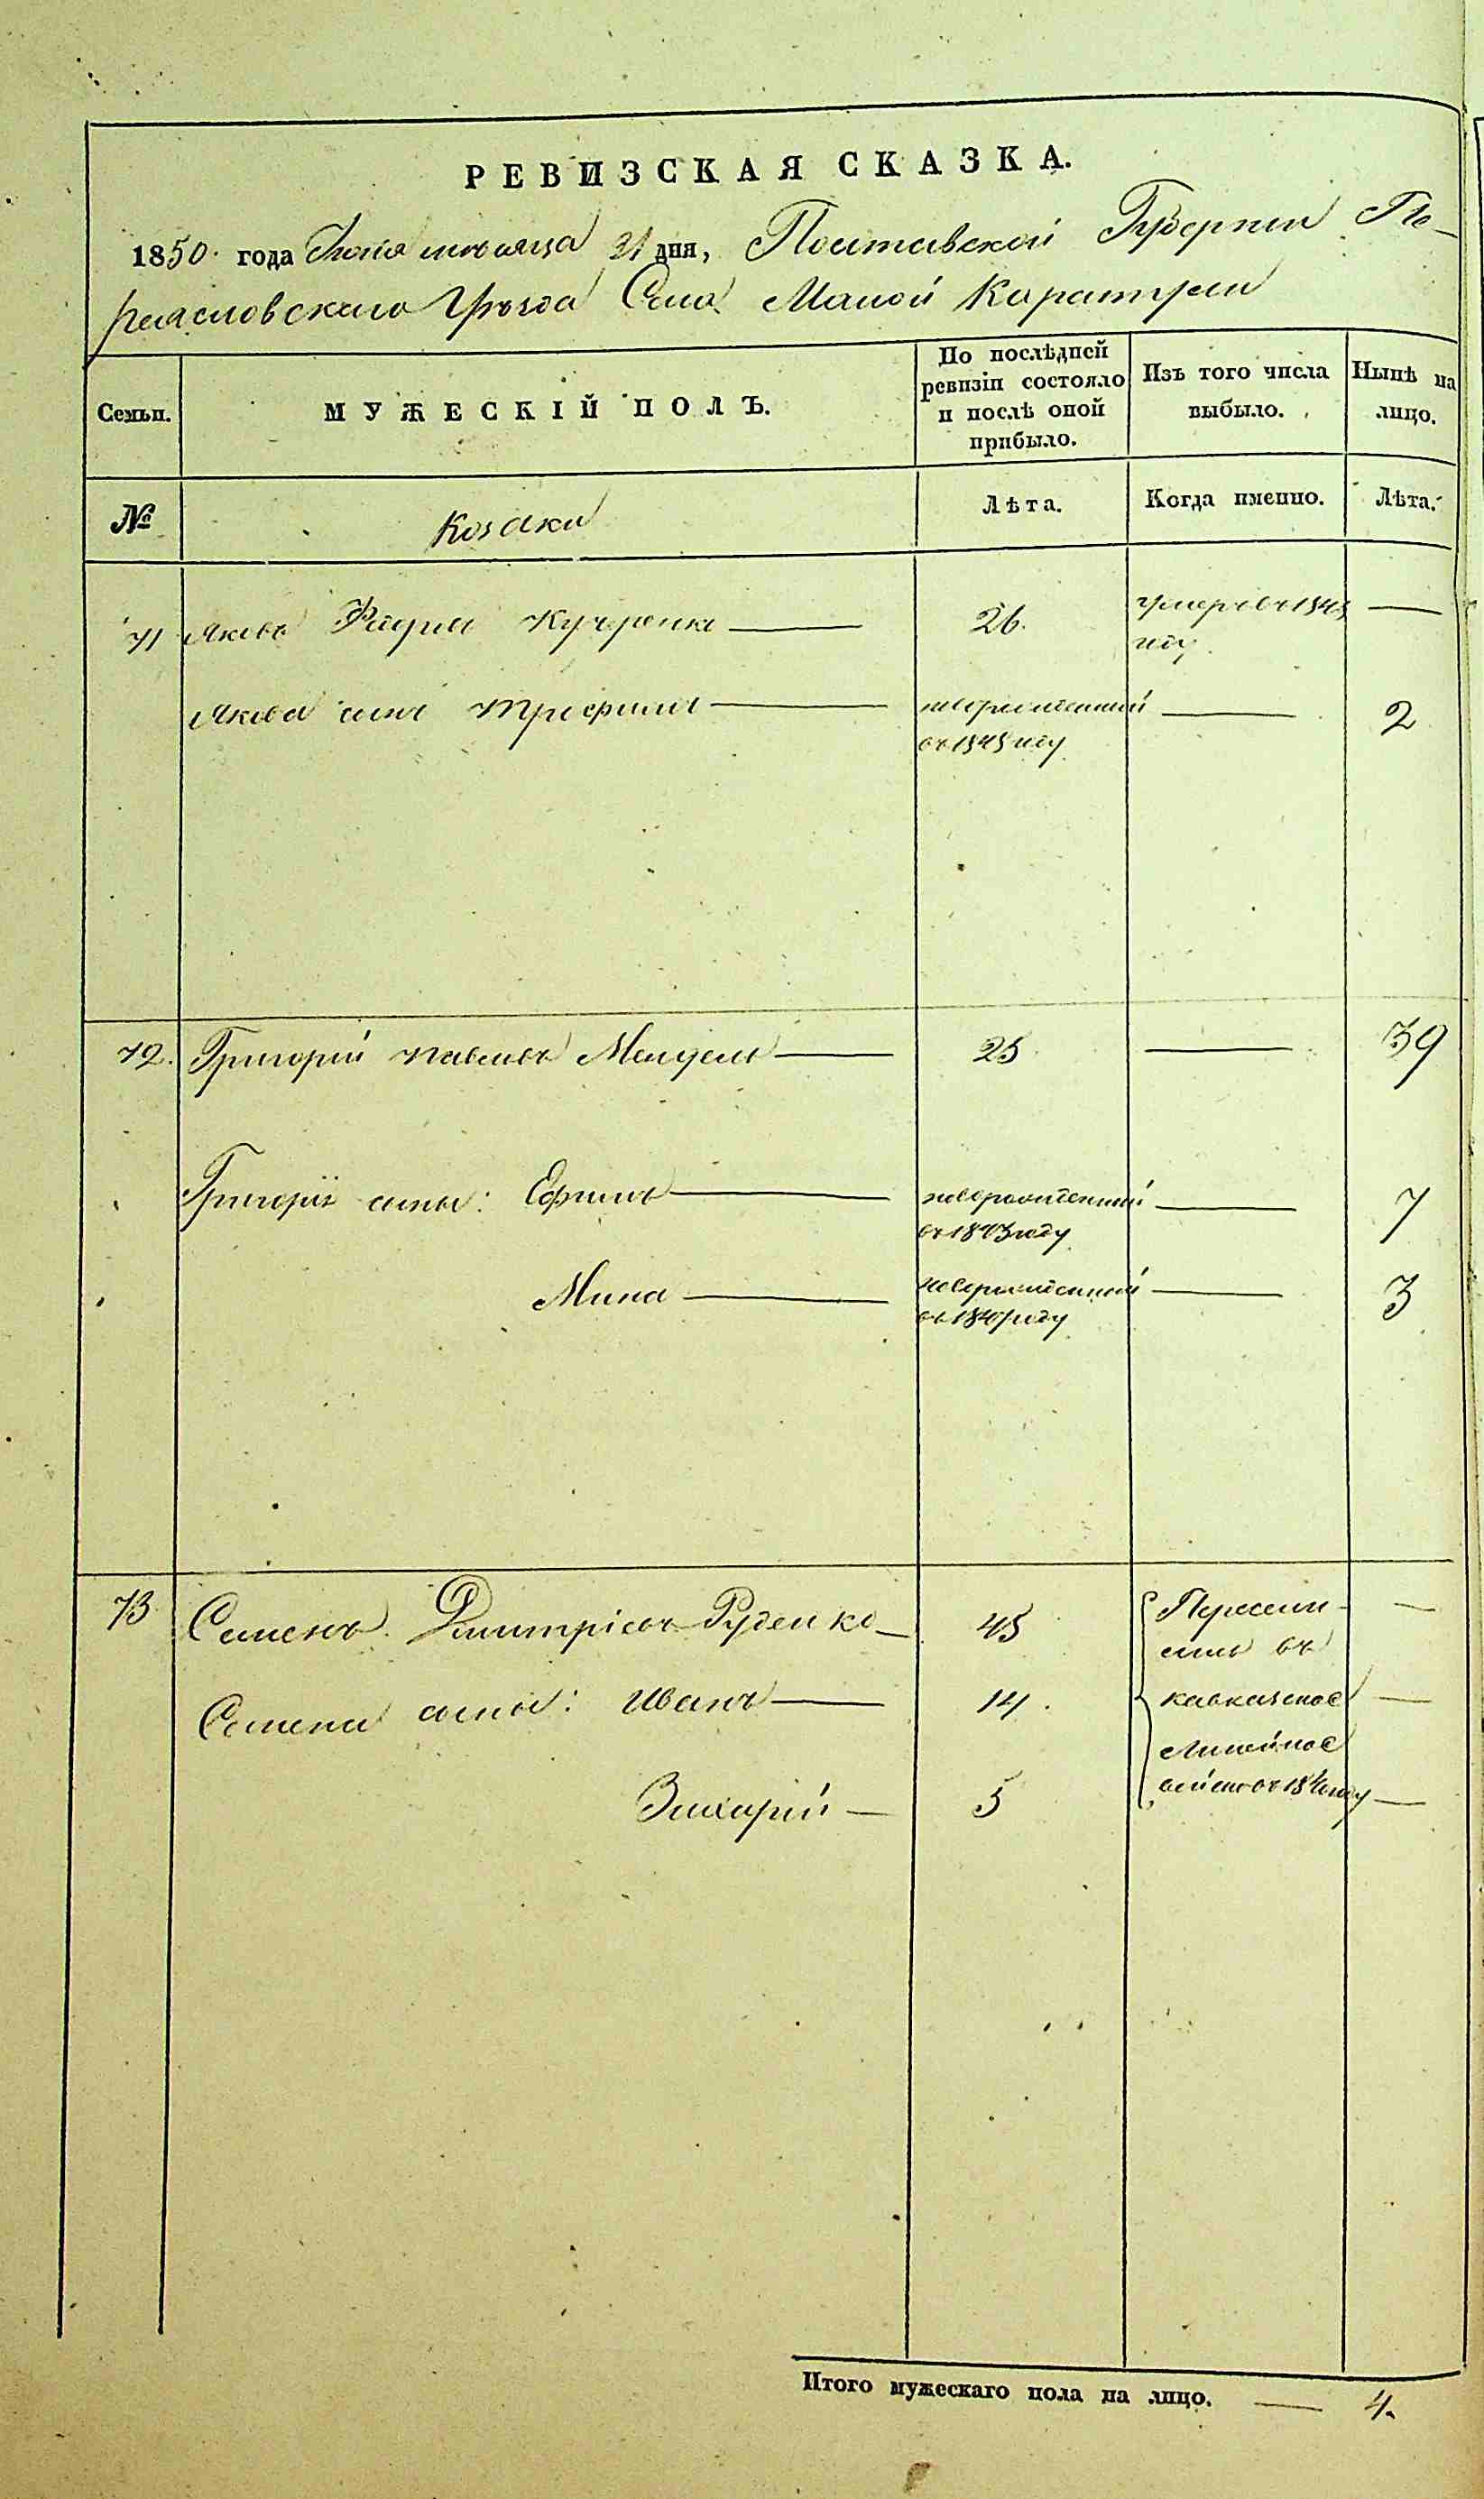 РЕВИЗСКАЯ СКАЗКА.
1850 года Июля месяца 31 дня, Полтавской Губернии Пе-
реясловского Уѣзда Села Малой Каратули
Семьи.
МУЖЕСКІЙ ПОЛЪ.
По послѣдней
ревизіи состояло
и послѣ оной
прибыло.
Изъ того числа
выбыло.
Нынѣ на
лицо.
№
Козаки
Лѣта.
Когда именно.
Лѣта.
71 Яковъ Кучеренко 26. умеръ въ —
году
Якова сынъ Трофимъ новорожденный — 2
въ 1848 году
72. Григорій Павловъ 25 — 39
Григорія сыны: Ефимъ новорожденный — 7
въ 1843 году
Мина новорожденный — 3
въ 1847 году
73 Семенъ Дмитріевъ Руденко 45 Пересели- —
лись въ
Семена сыны: Иванъ 14. Кавказкое —
Линейное
Захарій 5 войско въ году —
Итого мужескаго пола на лицо. — 4.